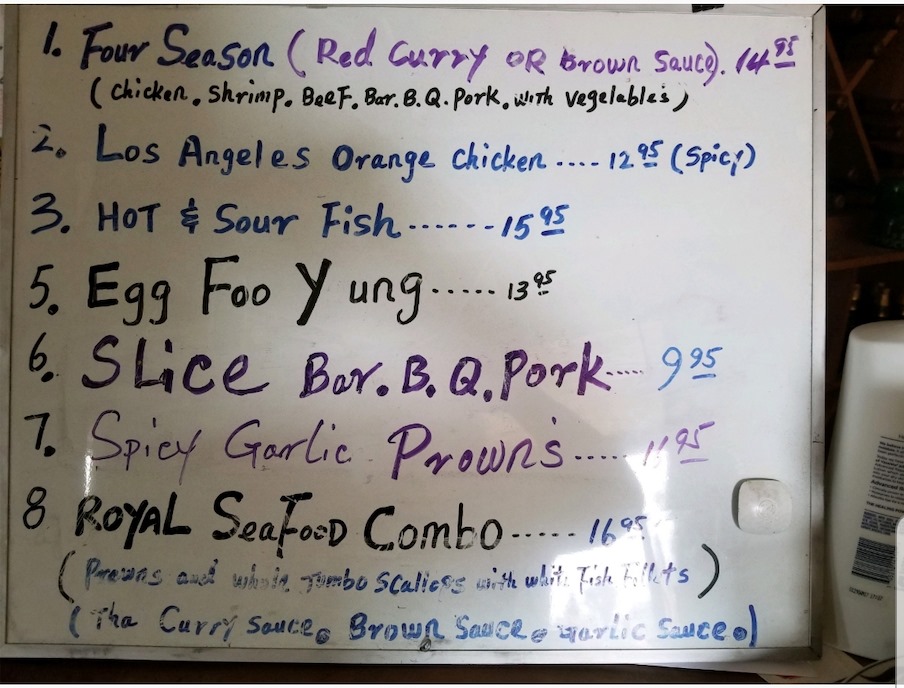 1. Four Season (Red Curry OR Brown Sauce). 14 95
(Chicken. Shrimp. BeeF. Bar.B.Q. Pork. with vegelables)
2. Los Angeles Orange Chicken .... 12 95 (Spicy)
3. HOT & Sour Fish ...... 15 95
5. Egg Foo Yung ..... 13 95
6. SLice Bar.B.Q. Pork .... 9 95
7. Spicy Garlic Prown's ..... 95
8 ROYAL SeaFooD Combo ..... 16 95
(Prowns and whole Jumbo Scallops with white Fish Fillets)
(Tha Curry Sauce. Brown Sauce. Garlic Sauce.)